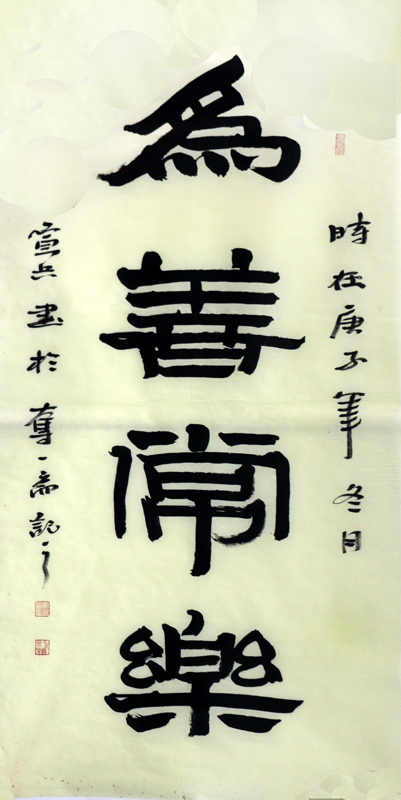 時在庚子年冬月
為善常樂
宣兵書於奮一斋記之